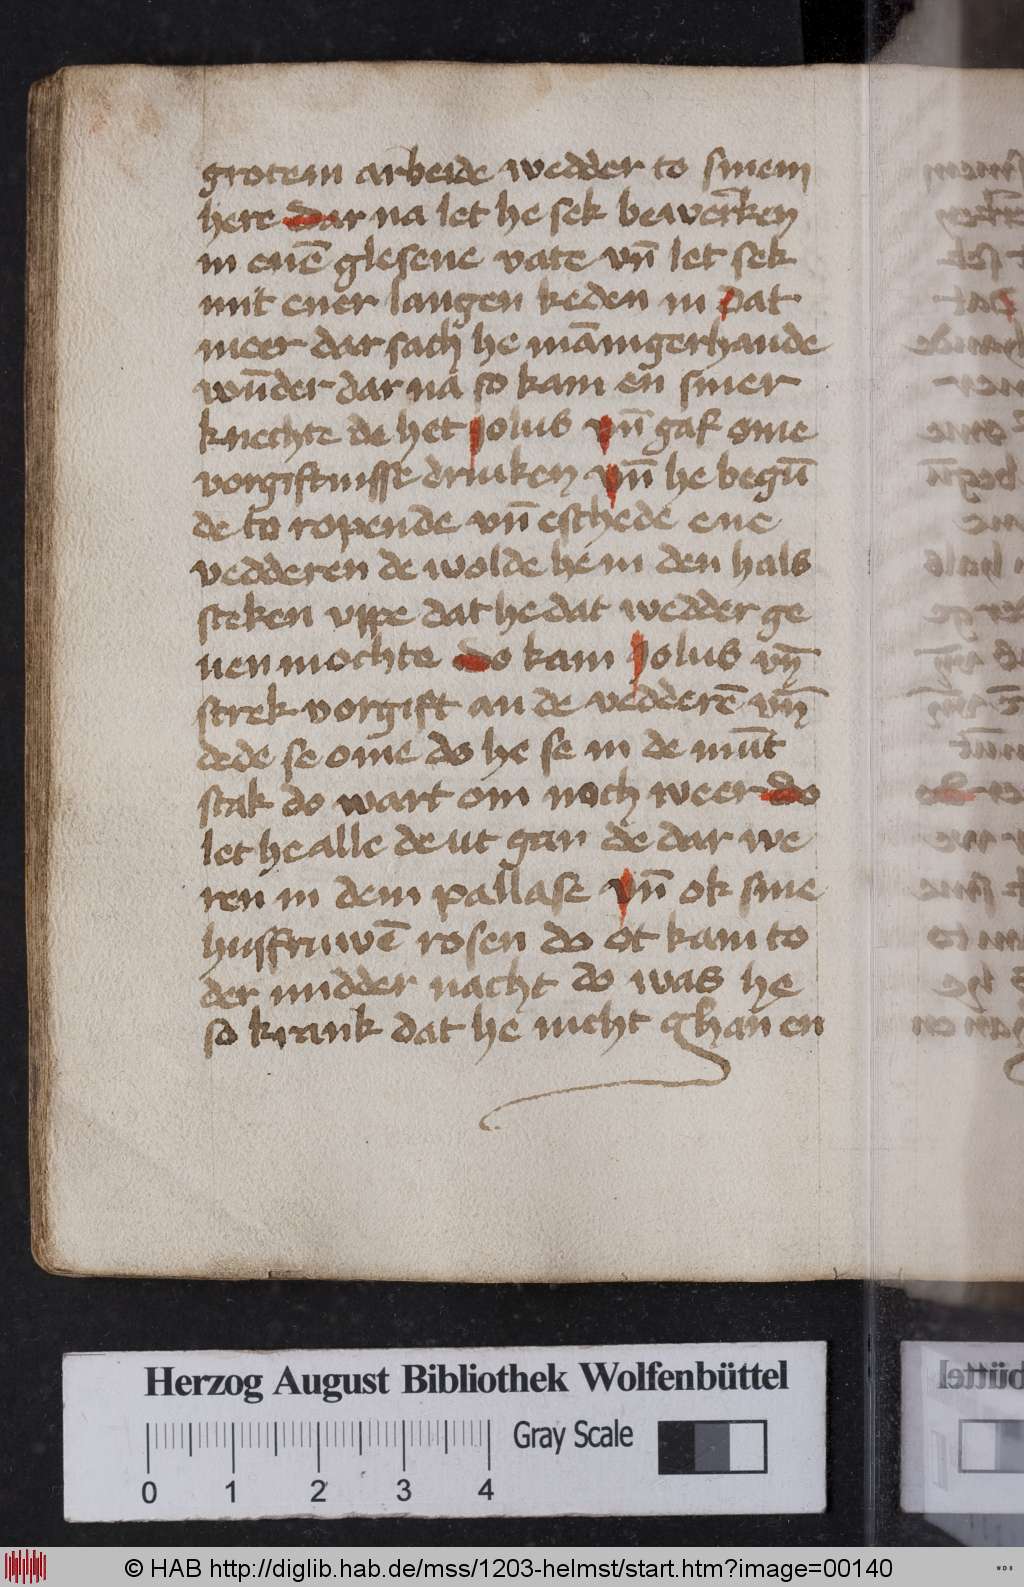 grotem arbeide wedder to sinem
here dar na let he sek bewerken
in enē glesene vate vn̄ let sek
mit ener langen keden in dat
meer dar sach he mānigerhande
wūder dar na so kam en siner
knechte de het jolus vn̄ gaf ome
vorgiftnisse drinken vn̄ he begū
de to ropende vn̄ eschede ene
vedderen de wolde he in den hals
steken vppe dat he dat wedder ge
uen mochte do kam jolus vn̄
strek vorgift an de vedderē vn̄
dede se ome do he se in de mūt
stak do wart om noch weer do
let he alle de ut gan de dar we
ren in dem pallase vn̄ ok sine
husfruwē rosen do ot kam to
der midder nacht do was he
so krank dat he nicht ghan en
Herzog August Bibliothek Wolfenbüttel
Gray Scale
0 1 2 3 4
© HAB http://diglib.hab.de/mss/1203-helmst/start.htm?image=00140